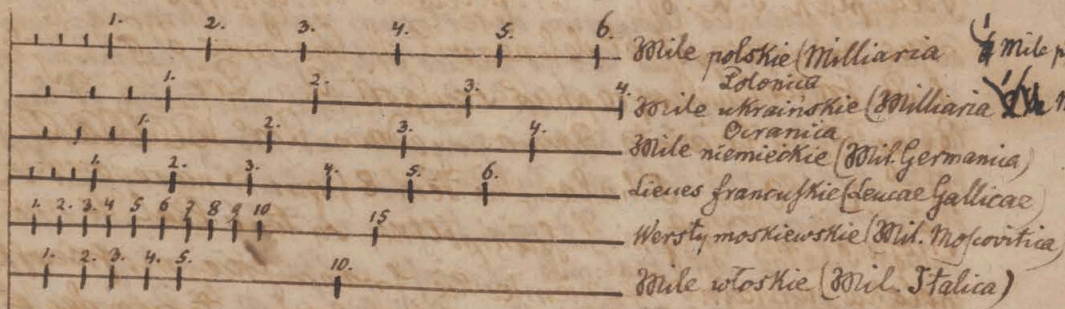 1. 2. 3. 4. 5. 6.
Mile polskie (Milliaria Polonica
Mile
1. 2. 3. 4.
Mile ukraińskie (Milliaria Ocranica
1. 2. 3. 4.
Mile niemieckie (Mil. Germanica)
1. 2. 3. 4. 5. 6.
Lieues francuskie (Leucae Gallicae)
1. 2. 3. 4 5 6 7 8 9 10 15
Wersty moskiewskie (Mil. Moscovitica)
1. 2. 3. 4. 5. 10.
Mile włoskie (Mil. Italica)